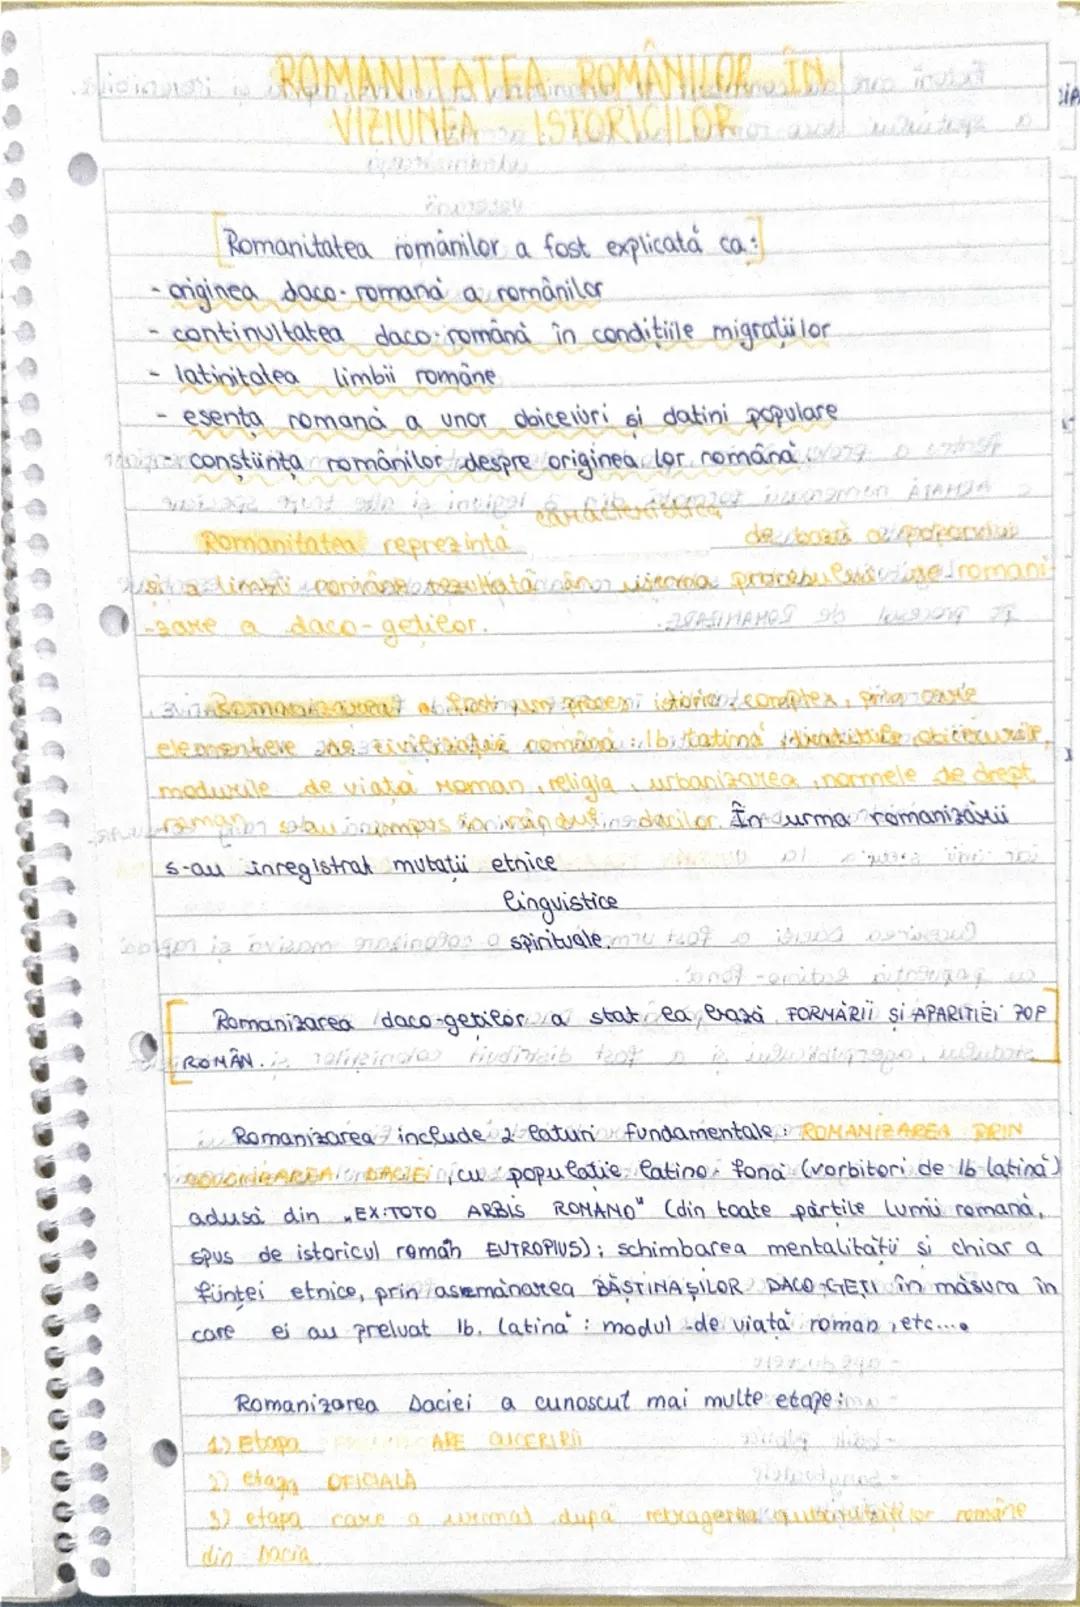 ROMANITATEA ROMÂNILOR ÎN
VIZIUNEA ISTORICILOR
Romanitatea românilor a fost explicată ca:
- originea daco-romană a românilor
- continuitatea daco-română în condițiile migrațiilor
- latinitatea limbii române
- esența romană a unor obiceiuri și datini populare
- conștiința românilor despre originea lor romană
Romanitatea reprezintă caracteristica de bază a poporului
și a limbii române rezultată în urma procesului de romani-
-zare a daco-geților.
Romanizarea a fost un proces istoric complex, prin care
elementele civilizației romane: lb. latină, obiceiurile,
modurile de viață roman, religia, urbanizarea, normele de drept
roman s-au impus în rândul dacilor. În urma romanizării
s-au înregistrat mutații etnice
lingvistice
spirituale.
Romanizarea daco-geților a stat la bază FORMĂRII ȘI APARIȚIEI POP
ROMÂN.
Romanizarea include 2 laturi fundamentale: ROMANIZAREA PRIN
DACIEI, cu populație latino-fonă (vorbitori de lb latină)
adusă din „EX:TOTO ARBIS ROMANO" (din toate părțile lumii romană,
spus de istoricul roman EUTROPIUS); schimbarea mentalității și chiar a
ființei etnice, prin asemănarea BĂȘTINAȘILOR DACO-GEȚI în măsura în
care ei au preluat lb. latină: modul de viață roman, etc....
Romanizarea Daciei a cunoscut mai multe etape:
1) Etapa CUCERIRII
2) etapa OFICIALĂ
3) etapa care a urmat după retragerea autorităților romane
din Dacia